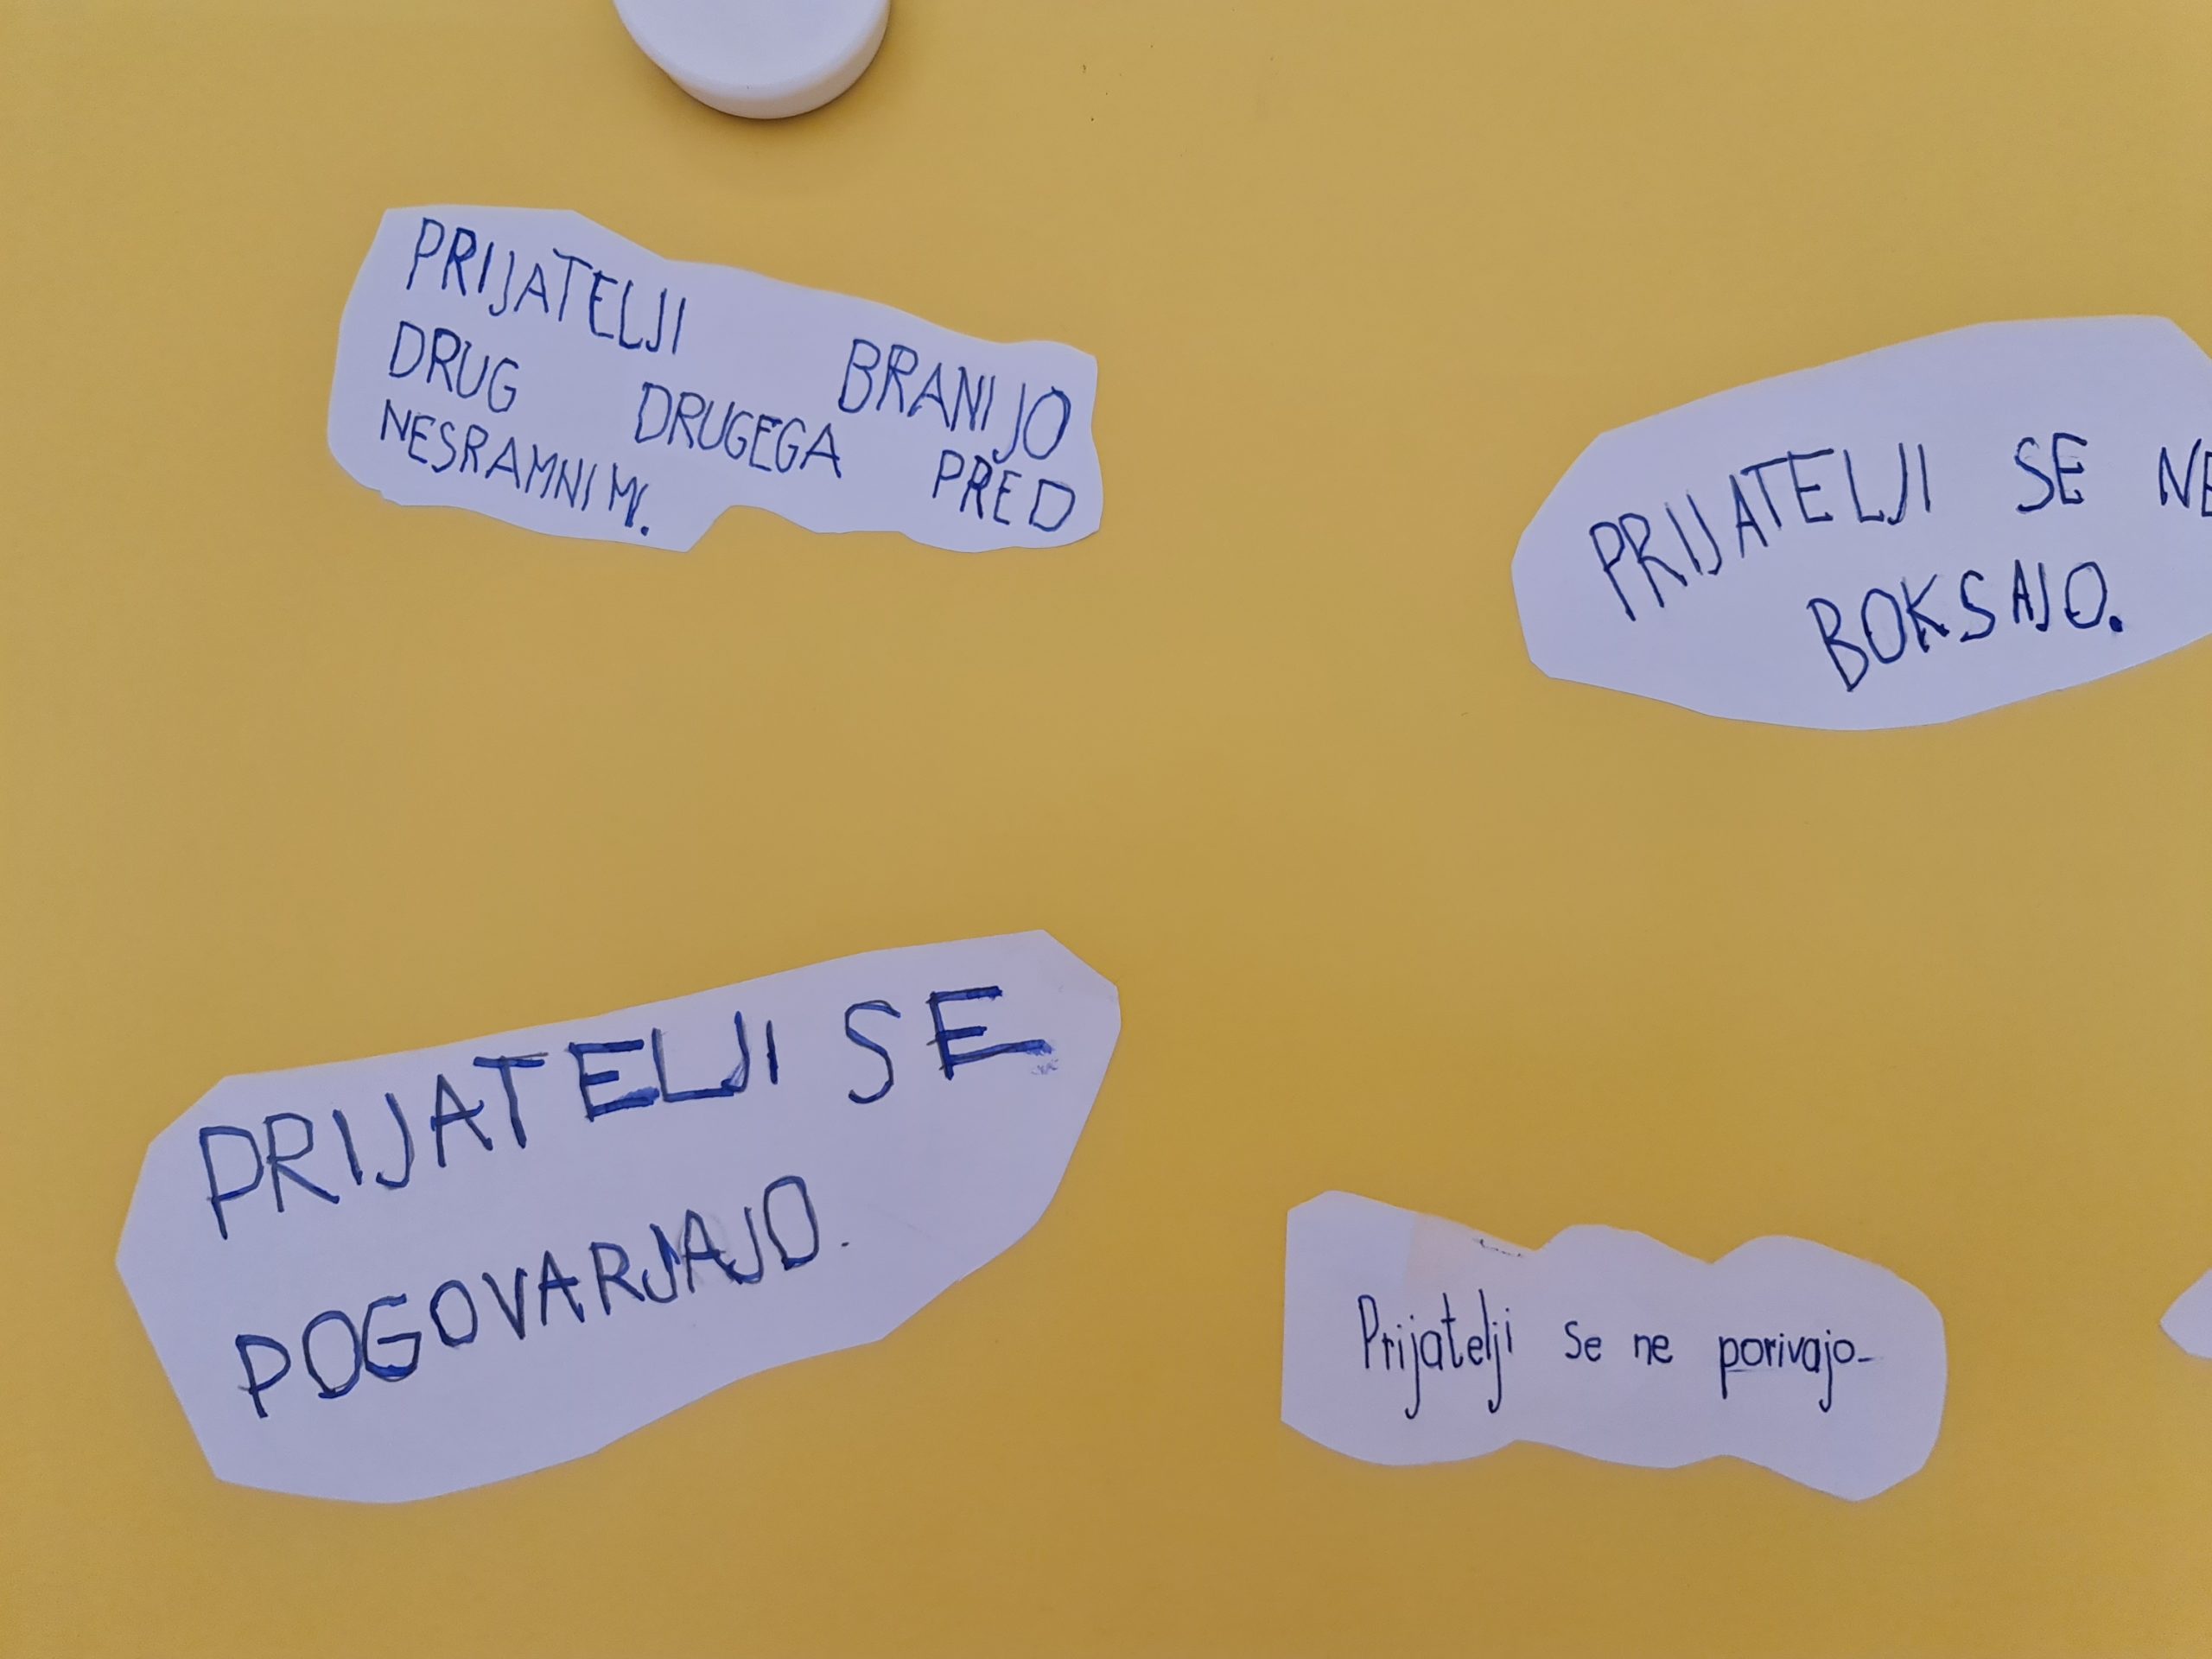 PRIJATELJI BRANIJO
DRUG DRUGEGA PRED
NESRAMNIMI.
PRIJATELJI SE NE
BOKSAJO.
PRIJATELJI SE
POGOVARJAJO.
Prijatelji se ne porivajo.